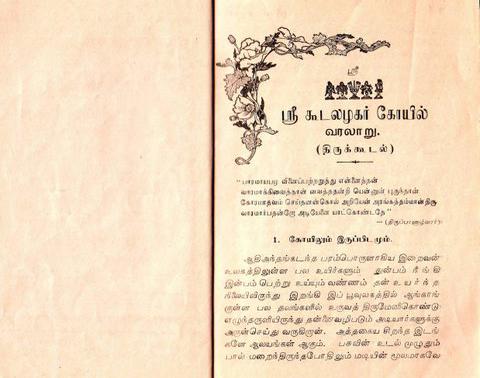 ஸ்ரீ
ஸ்ரீ கூடலழகர் கோயில்
வரலாறு.
(திருக்கூடல்)
"பாரமாயபழ வினைப்பற்றறுத்து என்னைத்தன்
வாரமாக்கிவைத்தான் வைத்ததன்றி யென்னுள் புகுந்தான்
கோரமாதவம் செய்தனன்கொல் அறியேன் அரங்கத்தம்மான்திரு
வாரமார்பதன்றோ அடியேனை யாட்கொண்டதே"
— (திருப்பாணாழ்வார்)
1. கோயிலும் இருப்பிடமும்.
ஆதிஅந்தங்கடந்த பரம்பொருளாகிய இறைவன்
உலகத்திலுள்ள பல உயிர்களும் துன்பம் நீங்கி
இன்பம் பெற்று உய்யும் வண்ணம் தன் உயர்ந்த
நிலையிலிருந்து இறங்கி இப் பூவுலகத்தில் ஆங்காங்
குள்ள பல தலங்களில் உருவத் திருமேனிகொண்டு
எழுந்தருளியிருந்து தன்னைவழிபடும் அடியார்களுக்கு
அருள்செய்து வருகிறான். அத்தகைய சிறந்த இடங்
களே ஆலயங்கள் ஆகும். பசுவின் உடல் முழுதும்
பால் மறைந்திருந்தபோதிலும் மடியின் மூலமாகவே